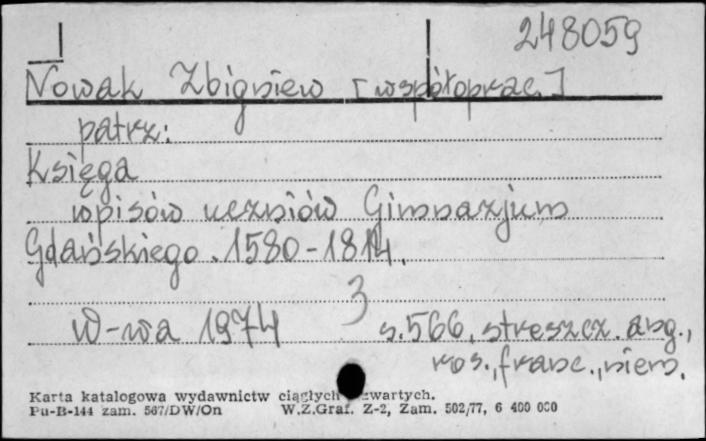 248059
Nowak Zbigniew [współoprac.]
patrz:
Księga
wpisów uczniów Gimnazjum
Gdańskiego. 1580-1814.
3
W-wa 1974 s.566, streszcz. ang.,
ros., franc., niem.
Karta katalogowa wydawnictw ciągłych zwartych.
Pu-B-144 zam. 567/DW/On W.Z.Graf. Z-2, Zam. 502/77, 6 400 000